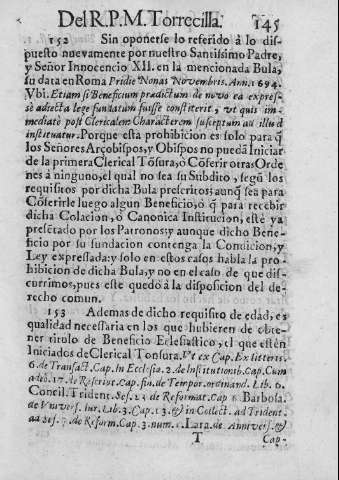 Del R.P.M. Torrecilla. 145
152 Sin oponerse lo referido à lo dis-
puesto nuevamente por nuestro Santissimo Padre,
y Señor Innocencio XII. en la mencionada Bula,
su data en Roma Pridie Nonas Novembris. Ann. 1694.
Vbi. Etiam si Beneficium prædictum de novo ea expres-
sè adiecta lege fundatum fuisse constiterit, ut quis im-
mediatè post Clericalem Characterem susceptum ad illud
instituatur. Porque esta prohibicion es solo para q̃
los Señores Arçobispos, y Obispos no puedã Iniciar
de la primera Clerical Tõsura, ò Cõferir otras Orde-
nes à ninguno, el qual no sea su Subdito, segũ los
requisitos por dicha Bula prescritos; aunq̃ sea para
Cõferirle luego algun Beneficio, ò q̃ para recebir
dicha Colacion, ò Canonica Institucion, estè ya
presẽtado por los Patronos; y aunque dicho Bene-
ficio por su fundacion contenga la Condicion, y
Ley expressada: y solo en estos casos habla la pro-
hibicion de dicha Bula, y no en el caso de que dis-
currimos, pues este quedò à la disposicion del de-
recho comun.
153 Ademas de dicho requisito de edad, es
qualidad necessaria en los que hubieren de obte-
ner titulo de Beneficio Eclesiastico, el que estèn
Iniciados de Clerical Tonsura. Ut ex Cap. Ex litteris.
6. de Transact. Cap. In Ecclesia. 2. de Institutionib. Cap. Cum
adeò. 17. de Rescript. Cap. fin. de Tempor. ordinand. Lib. 6.
Concil. Trident. Ses. 23 de Reformat. Cap 6. Barbosa.
de Vnivers. iur. Lib. 3. Cap. 13. & in Collect. ad Trident.
ad Ses. 7. de Reform. Cap. 3. num. 1. Lara. de Annivers. &
T Cap-